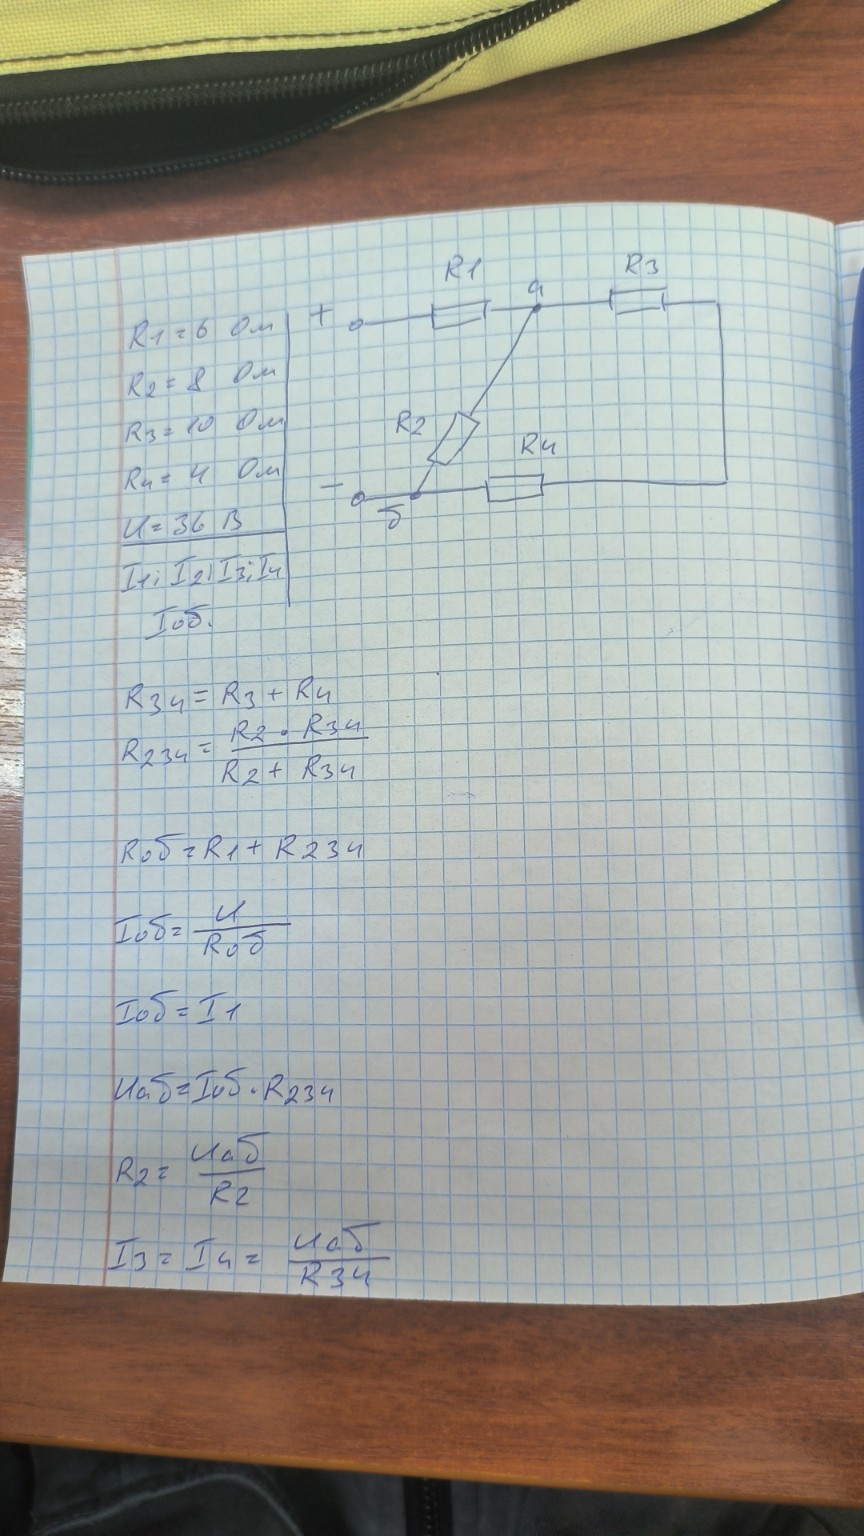 R1 = 6 Ом
R2 = 8 Ом
R3 = 10 Ом
R4 = 4 Ом
U = 36 В
I1; I2; I3; I4
Iоб.
R1
а
R3
+
R2
R4
−
б
R34 = R3 + R4
R234 = R2 · R34 / R2 + R34
Rоб = R1 + R234
Iоб = U / Rоб
Iоб = I1
Uаб = Iоб · R234
R2 = Uаб / R2
I3 = I4 = Uаб / R34